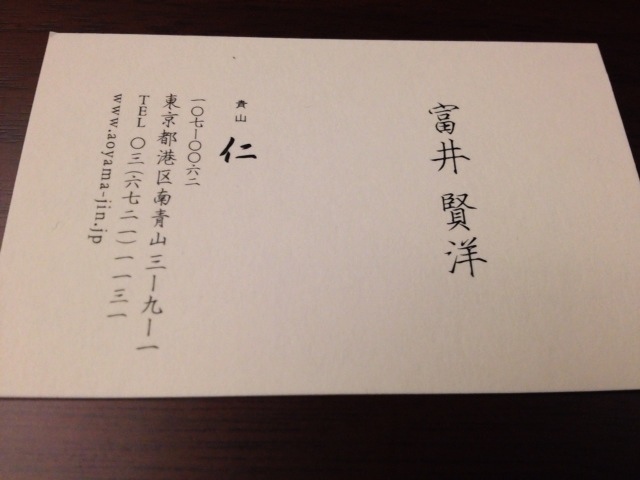 富井 賢洋
青山
仁
一〇七—〇〇六二
東京都港区南青山三—九—一
TEL 〇三(六七二一)一一三一
www.aoyama-jin.jp